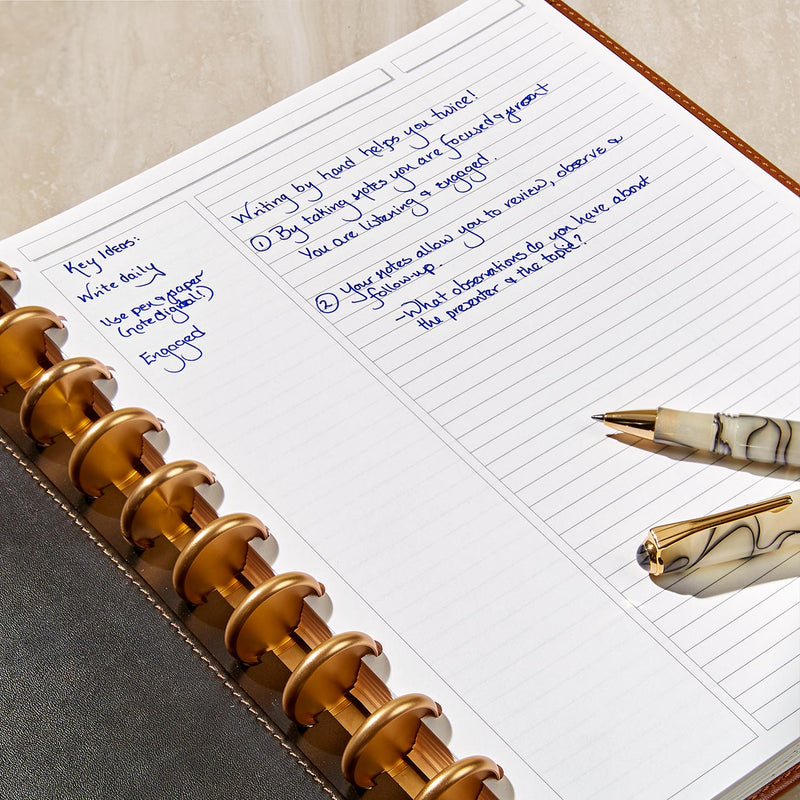 Writing by hand helps you twice!
① By taking notes you are focused & present
You are listening & engaged.
② Your notes allow you to review, observe &
follow-up.
- What observations do you have about
the presenter & the topic?
Key Ideas:
Write daily
Use pen & paper
(not digital!)
Engaged